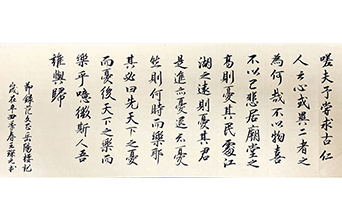 嗟夫予嘗求古仁
人之心或異二者之
為何哉不以物喜
不以己悲居廟堂之
高則憂其民處江
湖之遠則憂其君
是進亦憂退亦憂
然則何時而樂耶
其必曰先天下之憂
而憂後天下之樂而
樂乎噫微斯人吾
誰與歸
節錄范文岳陽樓記
歲在辛酉季春王書